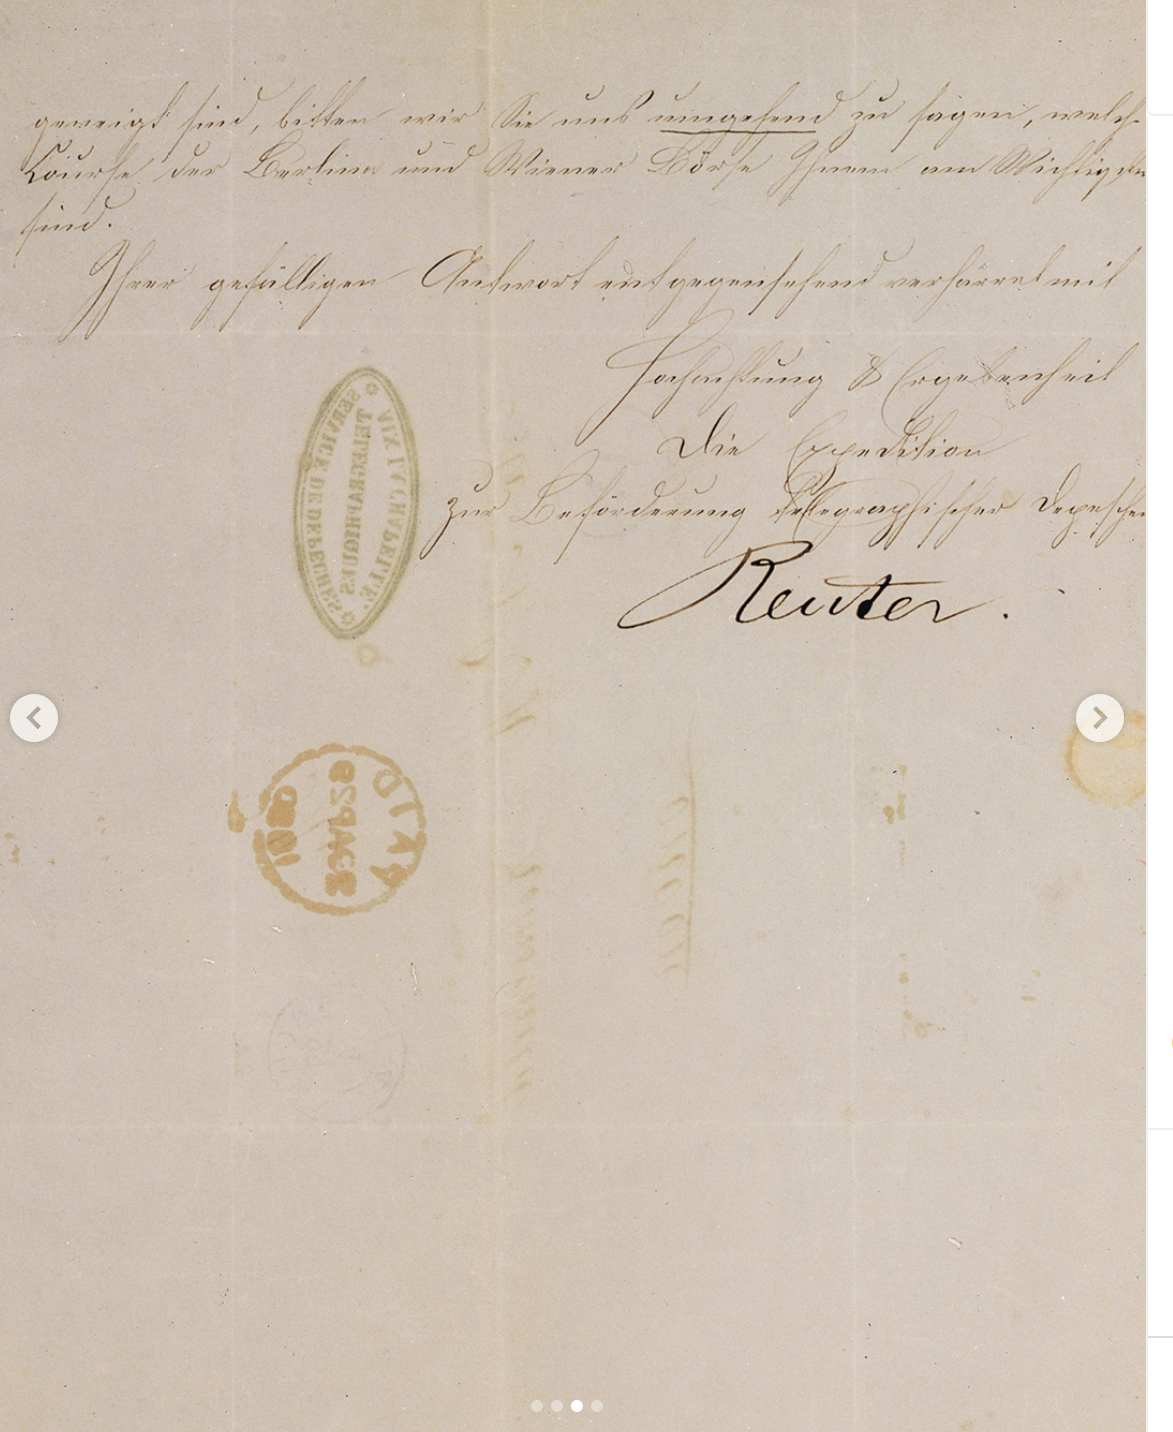 geneigt sind, bitten wir Sie uns umgehend zu sagen, welch
Course der Berliner und Wiener Börse Ihnen am Wichtigsten
sind.
Ihrer gefälligen Antwort entgegensehend verharret mit
Hochachtung & Ergebenheit
Die Expedition
zur Beförderung telegraphischer Depeschen
Reuter.
AIX LA CHAPELLE.
TELEGRAPHIQUES
SERVICE DE DEPECHES
PAID
1850